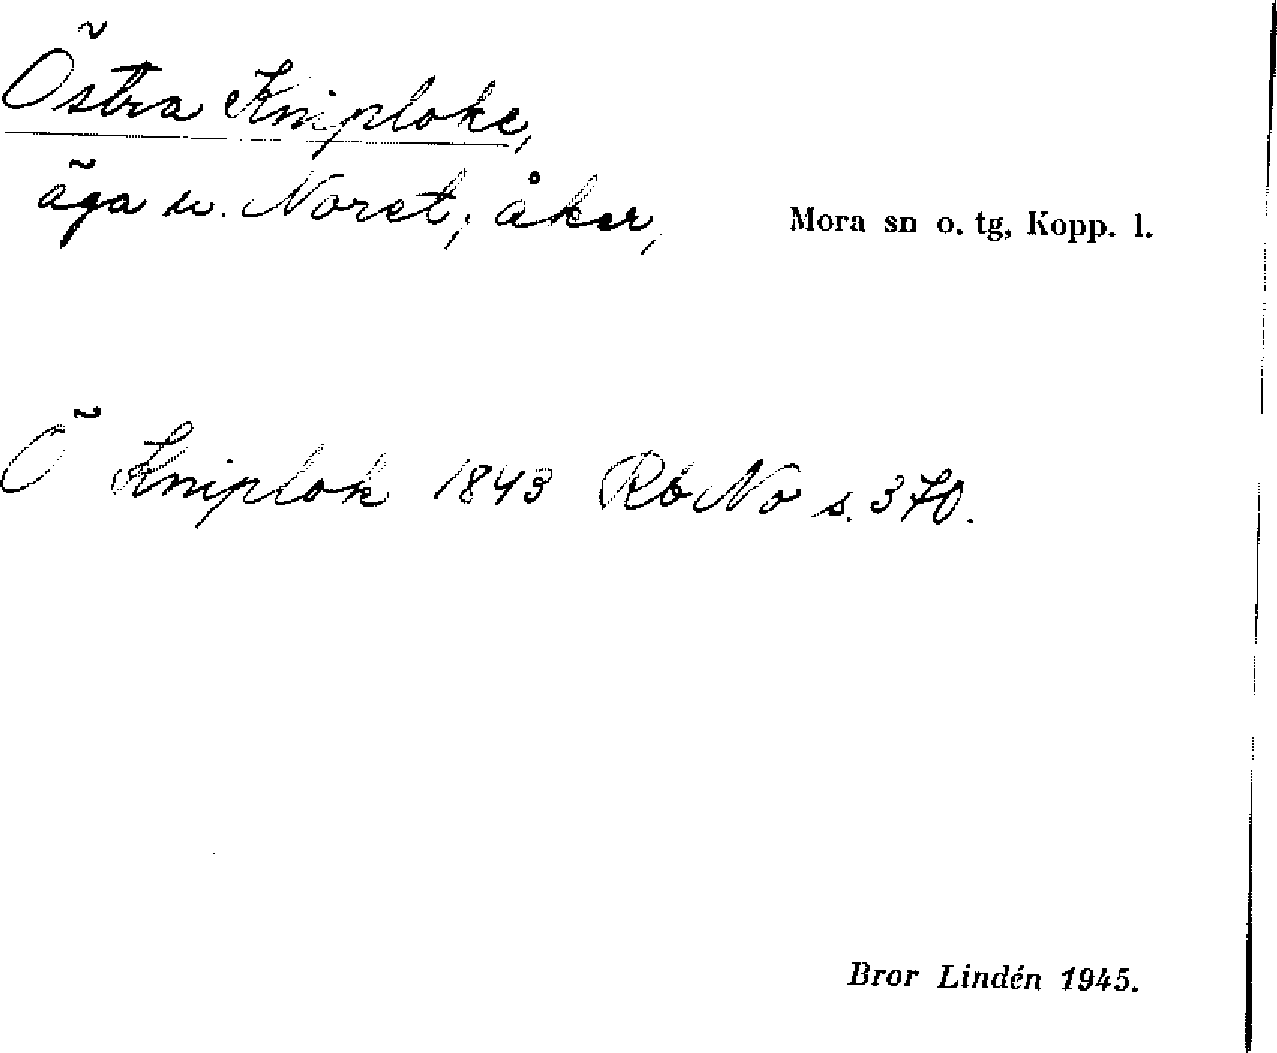 Östra Kniploke,
äga u. Noret; åker, Mora sn o. tg, Kopp. l.
Ö Kniplok 1843 RöNo s. 370.
Bror Lindén 1945.